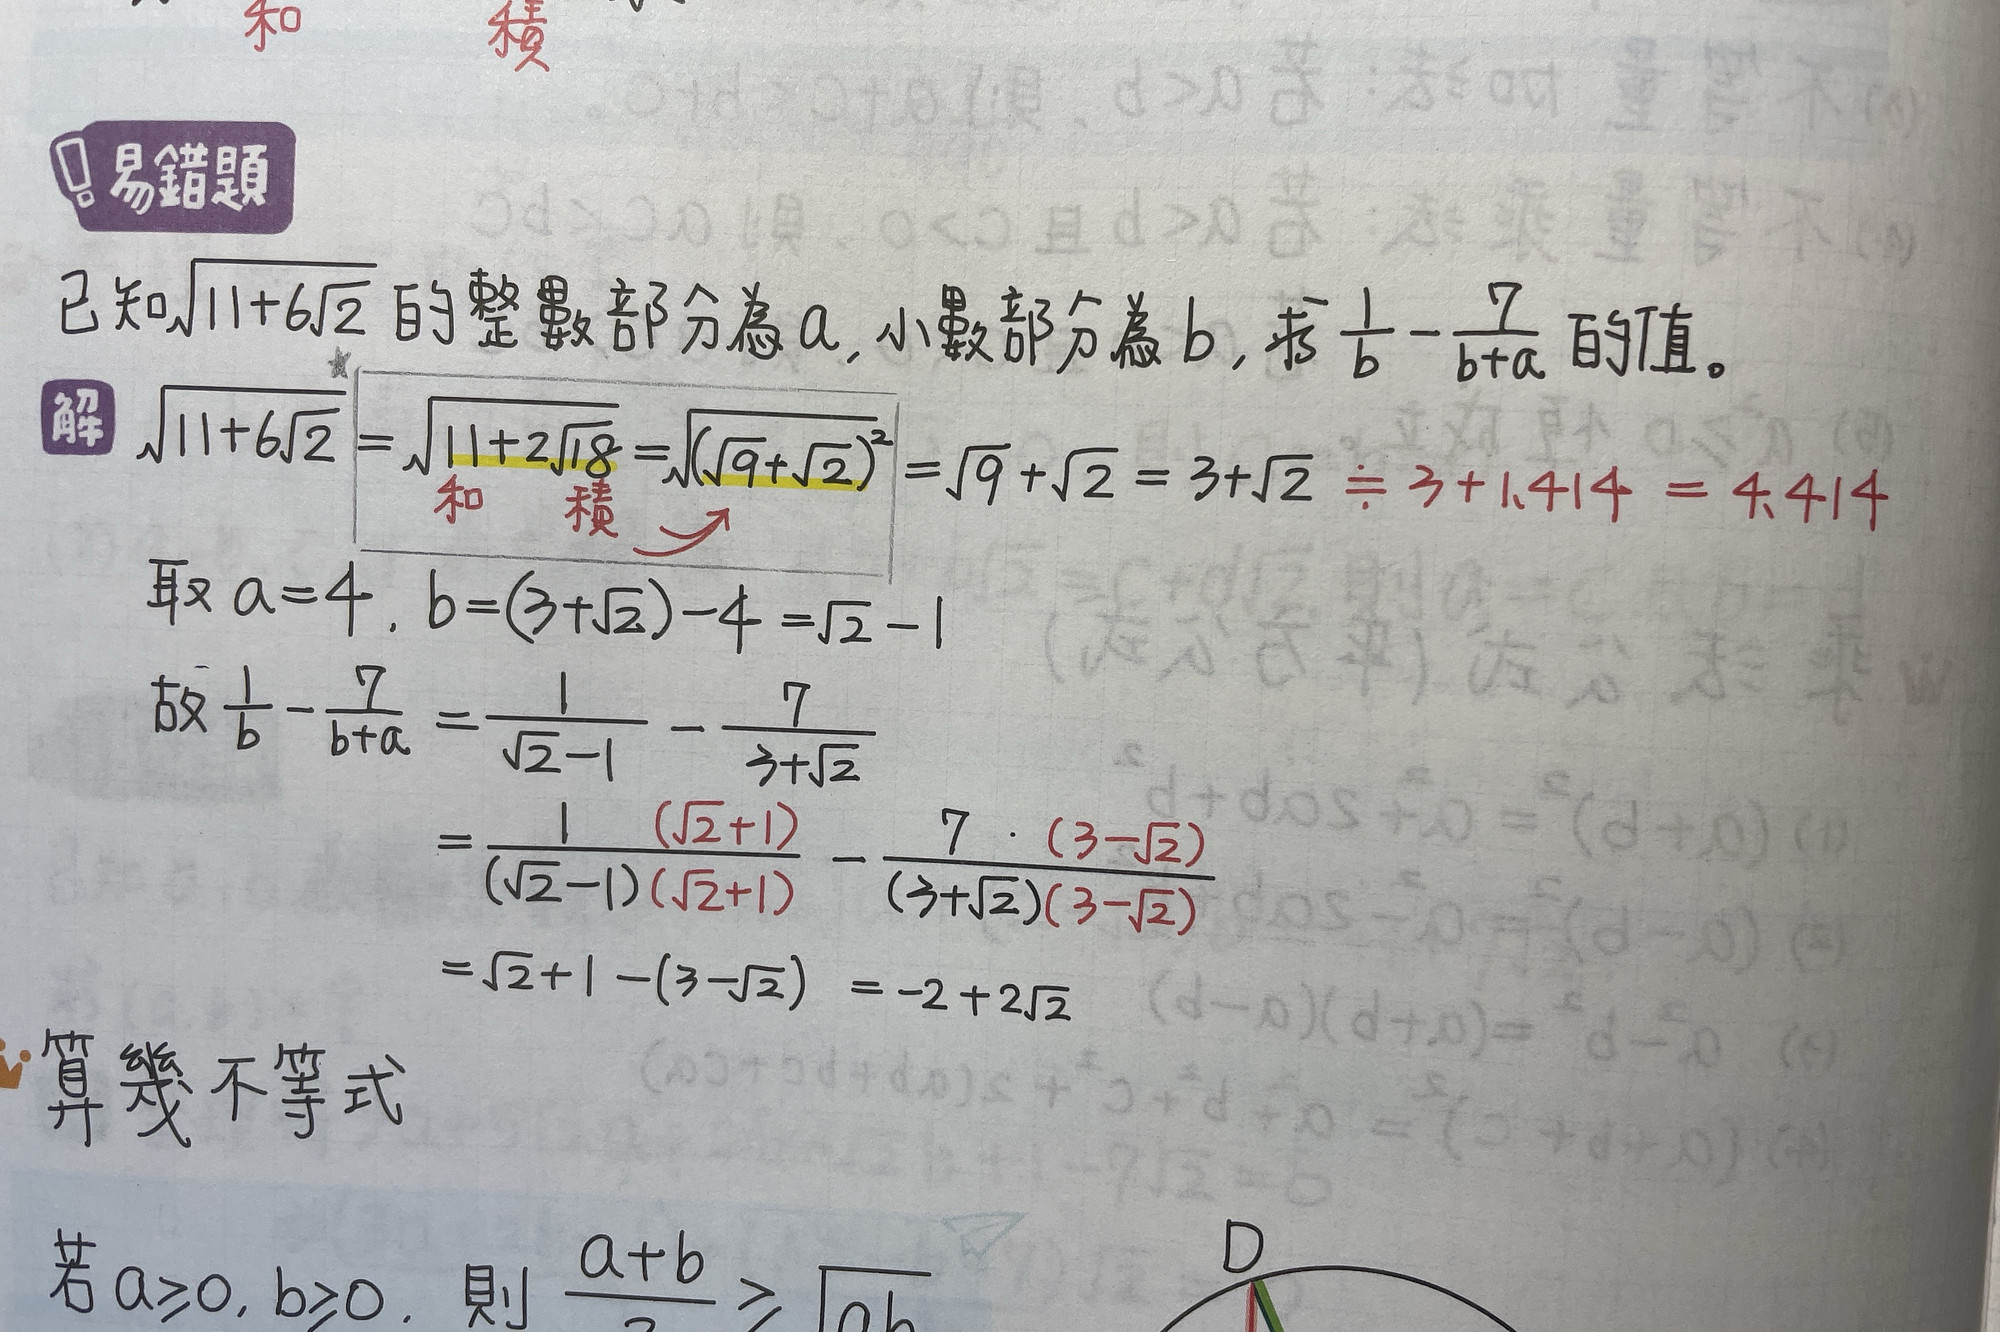 和 積
易錯題
已知√(11+6√2) 的整數部分為 a, 小數部分為 b, 求 1/b - 7/(b+a) 的值。
解 √(11+6√2) = √(11+2√18) = √((√9+√2)²) = √9+√2 = 3+√2 ≑ 3+1.414 = 4.414
和 積
取 a=4, b=(3+√2)-4=√2-1
故 1/b - 7/(b+a) = 1/(√2-1) - 7/(3+√2)
= 1(√2+1)/((√2-1)(√2+1)) - 7·(3-√2)/((3+√2)(3-√2))
= √2+1-(3-√2) = -2+2√2
算幾不等式
若 a≥0, b≥0, 則 (a+b)/2 ≥ √ab
D